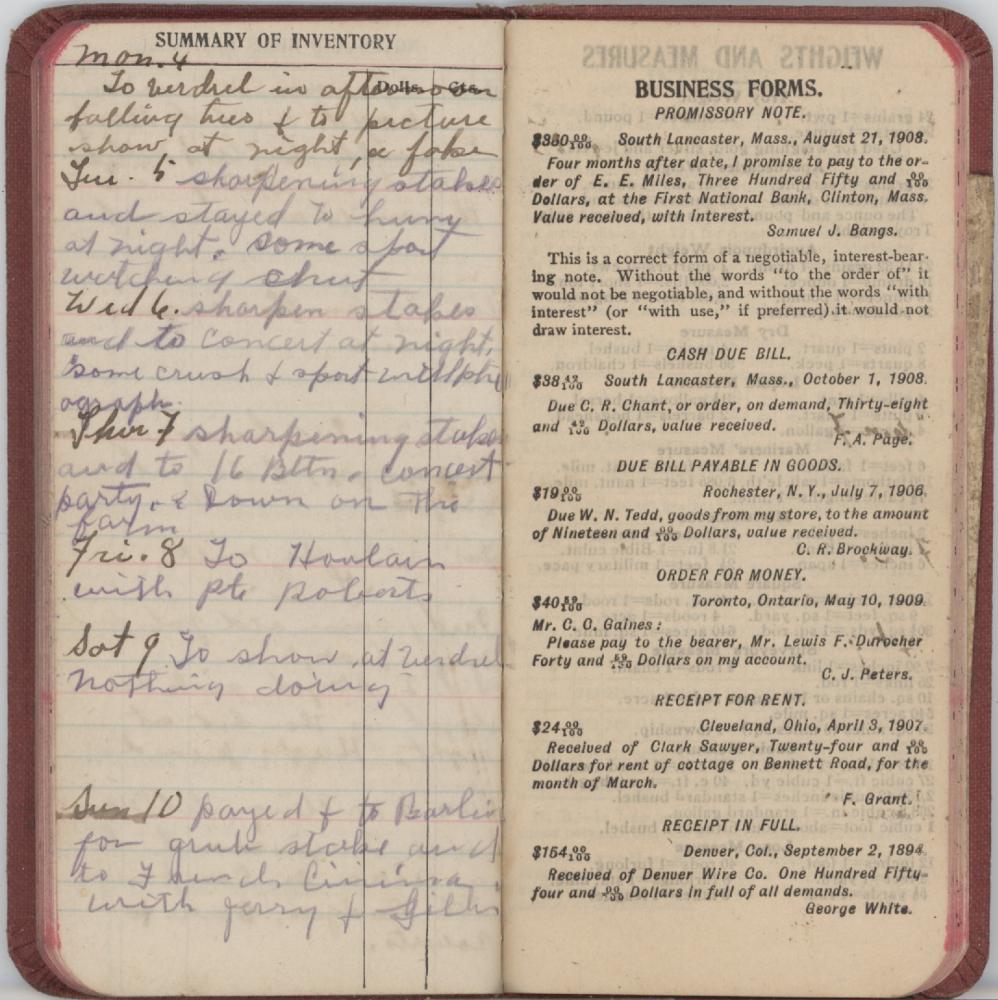 SUMMARY OF INVENTORY
Mon. 4
Dolls. Cts.
To verdrel in afternoon
falling trees & to picture
show at night, a fake
Tue. 5 sharpening stakes
and stayed to
at night. some sport
watching
Wed 6. sharpen stakes
and to concert at night,
some crush & sport with
ograph.
Thur 7 sharpening stakes
and to 16 Bttn. concert
party. & Down on the
farm
Fri. 8 To Houlain
with Pte Roberts
Sat 9 To show at verdrel
nothing doing
Sun 10 payed & to Barlin
for grub stake and
to French Cinima
with jerry &
WEIGHTS AND MEASURES
BUSINESS FORMS.
PROMISSORY NOTE.
$350 00/100 South Lancaster, Mass., August 21, 1908.
Four months after date, I promise to pay to the or-
der of E. E. Miles, Three Hundred Fifty and 00/100
Dollars, at the First National Bank, Clinton, Mass.
Value received, with interest.
Samuel J. Bangs.
This is a correct form of a negotiable, interest-bear-
ing note. Without the words "to the order of" it
would not be negotiable, and without the words "with
interest" (or "with use," if preferred) it would not
draw interest.
CASH DUE BILL.
$38 42/100 South Lancaster, Mass., October 1, 1908.
Due C. R. Chant, or order, on demand, Thirty-eight
and 42/100 Dollars, value received.
F. A. Page.
DUE BILL PAYABLE IN GOODS.
$19 00/100 Rochester, N. Y., July 7, 1906.
Due W. N. Tedd, goods from my store, to the amount
of Nineteen and 00/100 Dollars, value received.
C. R. Brockway.
ORDER FOR MONEY.
$40 50/100 Toronto, Ontario, May 10, 1909.
Mr. C. C. Gaines:
Please pay to the bearer, Mr. Lewis F. Durocher
Forty and 50/100 Dollars on my account.
C. J. Peters.
RECEIPT FOR RENT.
$24 00/100 Cleveland, Ohio, April 3, 1907.
Received of Clark Sawyer, Twenty-four and 00/100
Dollars for rent of cottage on Bennett Road, for the
month of March.
F. Grant.
RECEIPT IN FULL.
$154 00/100 Denver, Col., September 2, 1894.
Received of Denver Wire Co. One Hundred Fifty-
four and 00/100 Dollars in full of all demands.
George White.